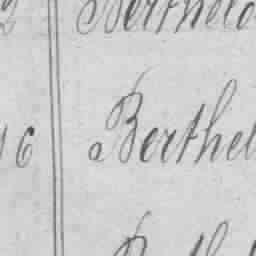 2 Berthelo
16 Berthel